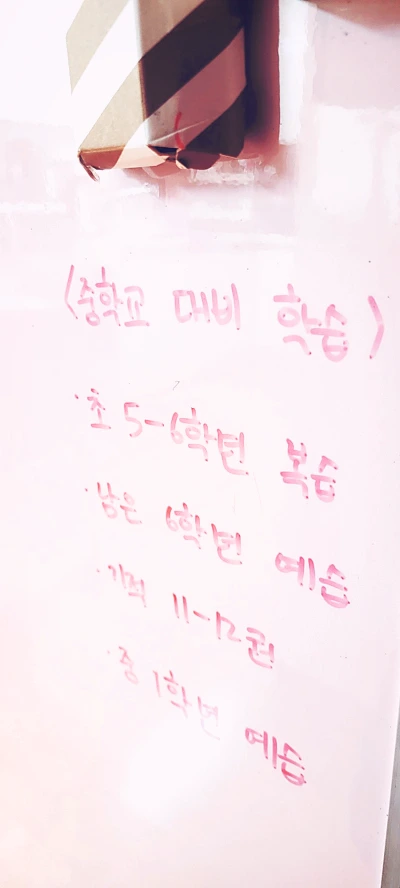 <중학교 대비 학습>
· 초 5-6학년 복습
· 남은 6학년 예습
· 기적 11-12권
· 중 1학년 예습